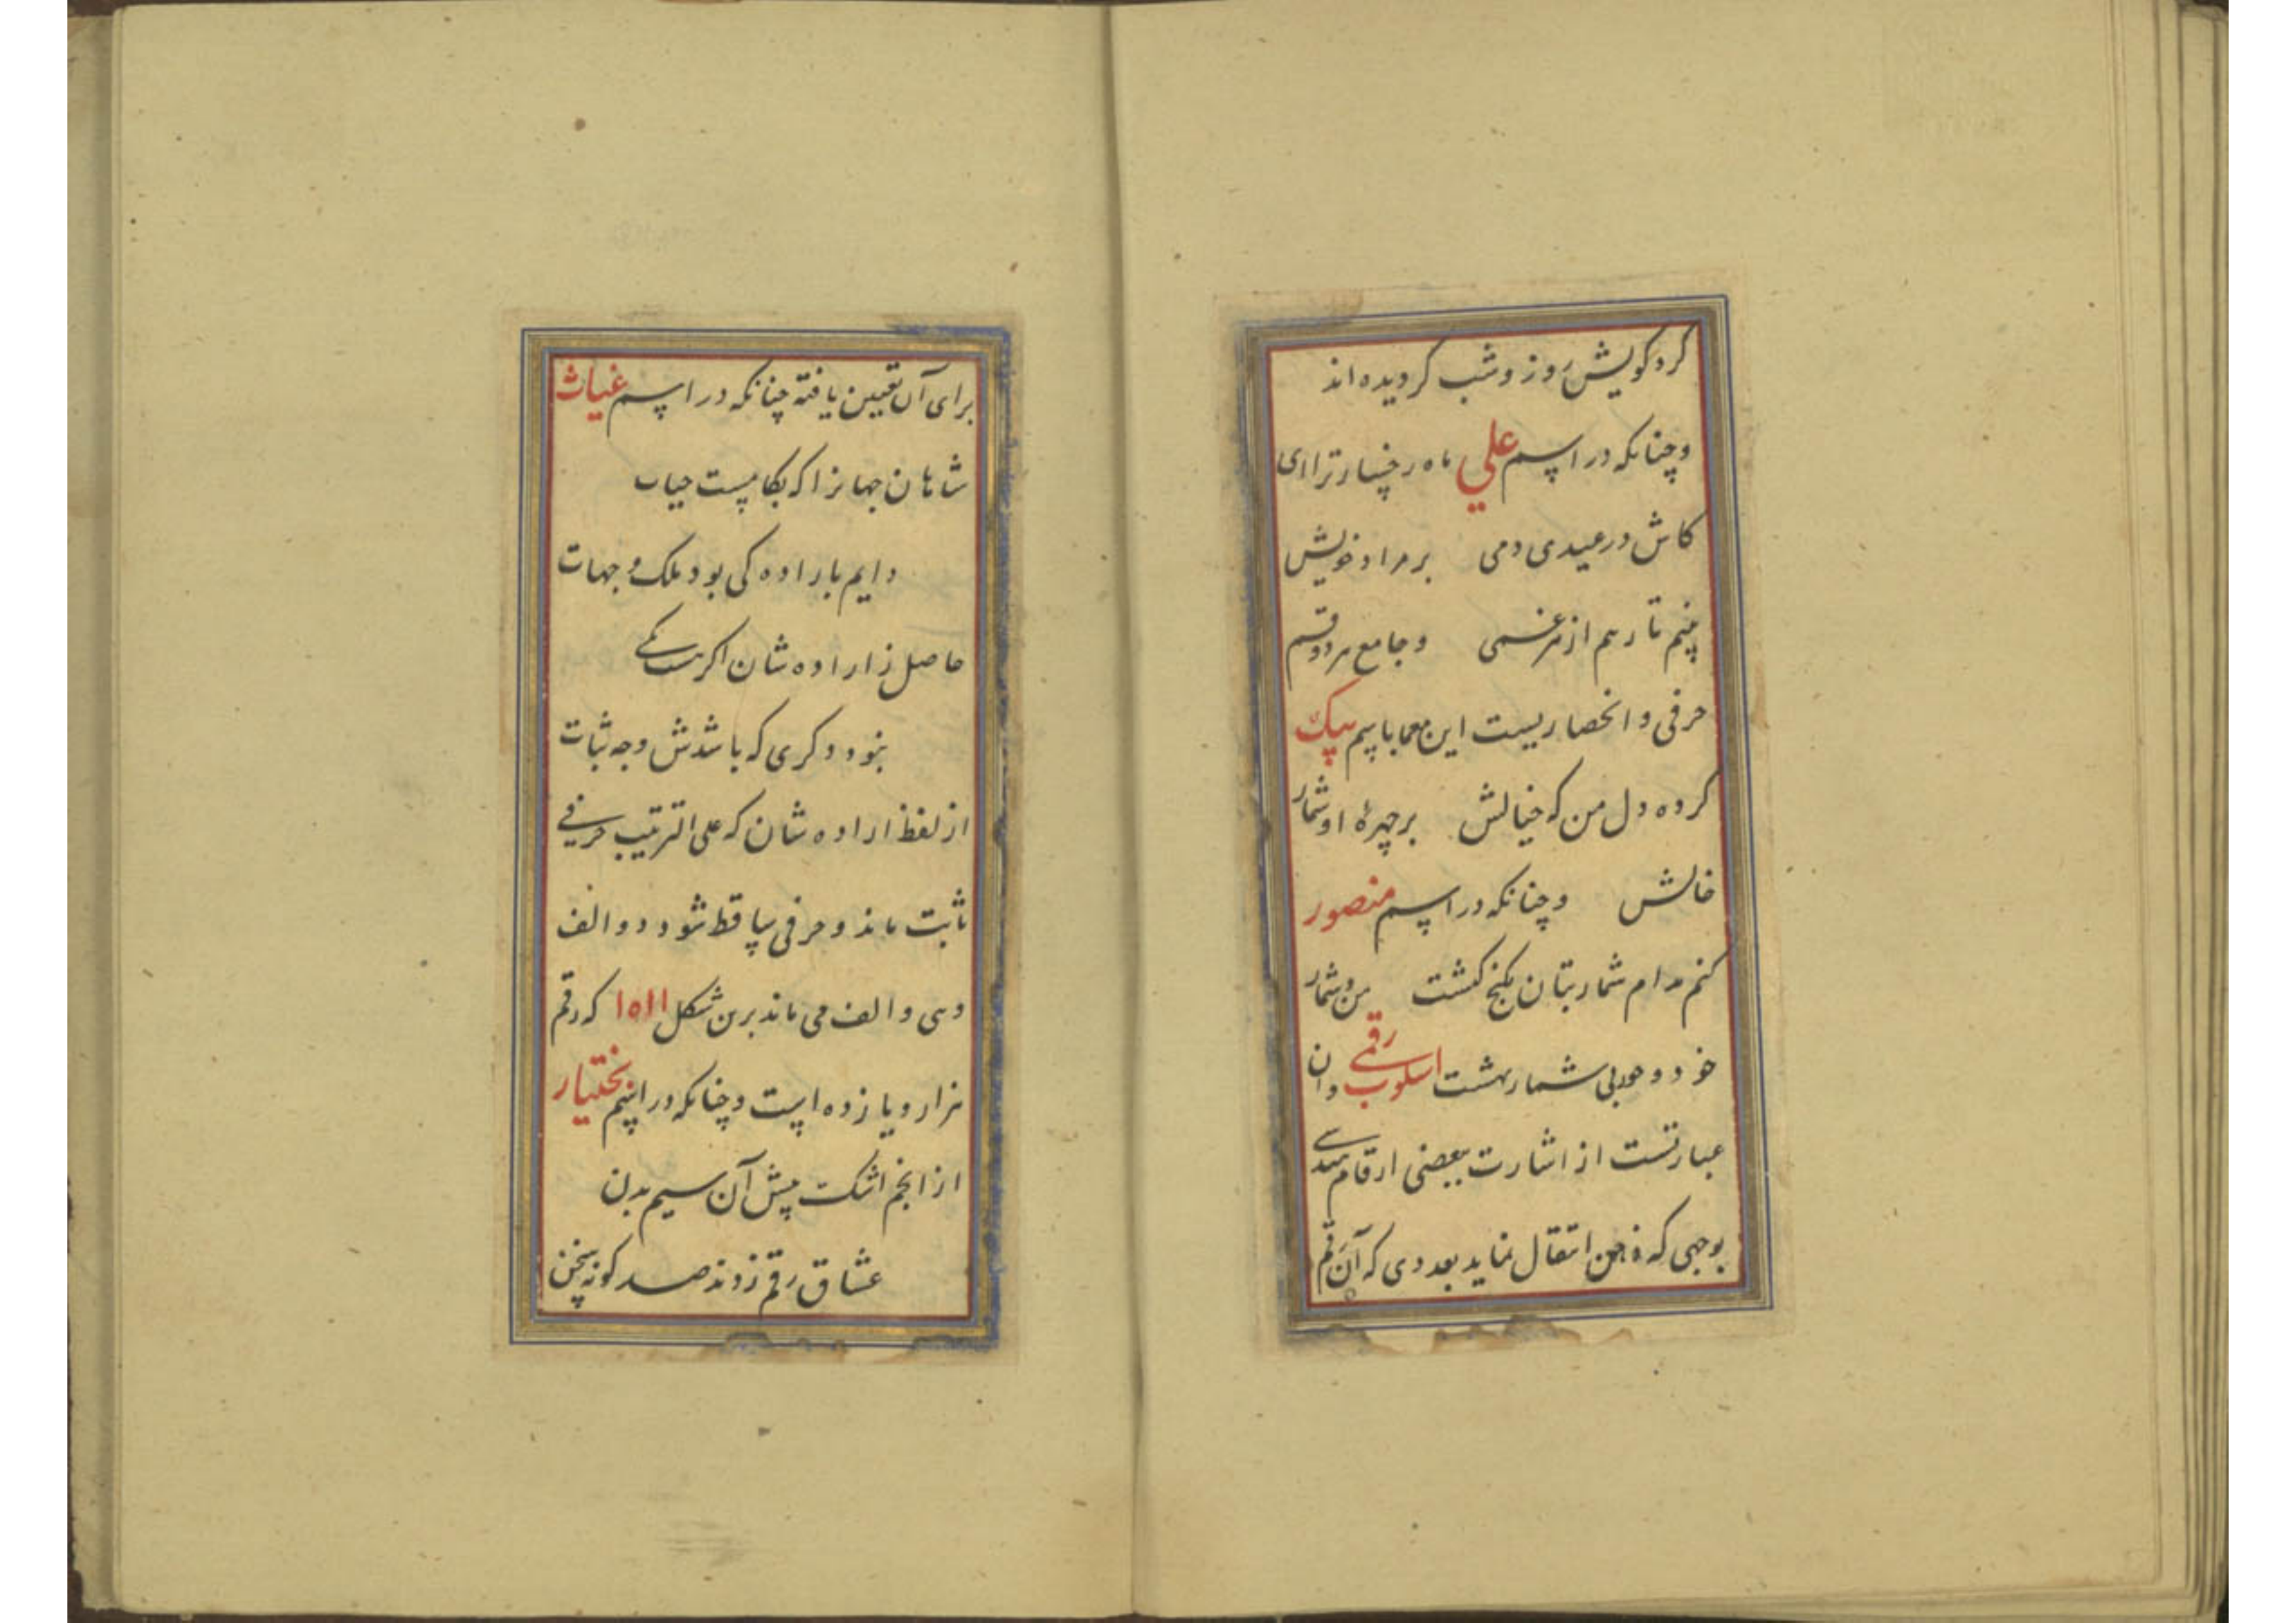 کرد کویش روز و شب کردیده اند
و چنانکه در اسم علي ماه رخسار ترا ای
کاش در عیدی دمی بر مراد خویش
بینم تا رهم از هر غمی و جامع هر دو قسم
حرفی و انحصاریست این معما باسم بیک
کرده دل من که خیالش بر چهرهٔ او شمار
خالش و چنانکه در اسم منصور
کنم مدام شمار بتان بکنج کنشت من و شمار
خود و حور بی شمار بهشت اسلوب رقمی و آن
عبارتست از اشارت ببعضی ارقام هندسی
بوجهی که ذهن انتقال نماید بعددی که آن رقم
برای آن تعیین یافته چنانکه در اسم غیاث
شاهان جهانرا که بکامست حیات
دایم باراده کی بود ملک و جهات
حاصل ز اراده شان اکر هست یکی
نبود دکری که باشدش وجه ثبات
از لفظ اراده شان که علی الترتیب حرفی
ثابت ماند و حرفی ساقط شود دو الف
و هی و الف می ماند برین شکل ١٥١١ که رقم
هزار و یازده است و چنانکه در اسم بختیار
از انجم اشکت پیش آن سیم بدن
عشاق رقم زدند صد کونه سخن